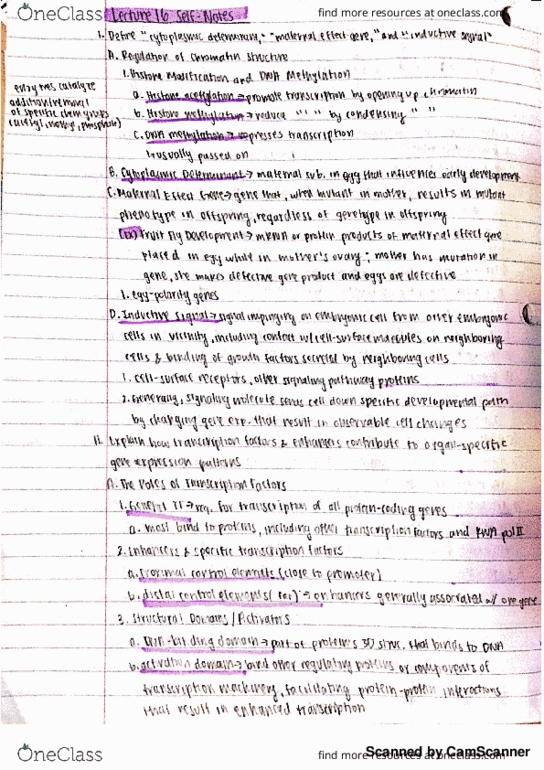 OneClass
find more resources at oneclass.com
Lecture 16 Self-Notes
I. Define "cytoplasmic determinant," "maternal effect gene," and "inductive signal"
A. Regulation of Chromatin Structure
1. Histone Modification and DNA Methylation
enzymes catalyze
addition/removal
of specific chem groups
(acetyl, methyl, phosphate)
a. Histone acetylation → promote transcription by opening up chromatin
b. Histone methylation → reduce " " by condensing " "
c. DNA methylation → represses transcription
↳ usually passed on
B. Cytoplasmic Determinant → maternal sub. in egg that influences early development
C. Maternal Effect Gene → gene that, when mutant in mother, results in mutant
phenotype in offspring, regardless of genotype in offspring
(ex) Fruit Fly Development → mRNA or protein products of maternal effect gene
placed in egg while in mother's ovary; mother has mutation in
gene, she makes defective gene product and eggs are defective
1. egg-polarity genes
D. Inductive Signal → signal impinging on embryonic cell from other embryonic
cells in vicinity, including contact w/ cell-surface molecules on neighboring
cells & binding of growth factors secreted by neighboring cells
1. cell-surface receptors, other signaling pathway proteins
2. Generally, signaling molecule sends cell down specific developmental path
by changing gene exp. that result in observable cell changes
II. Explain how transcription factors & enhancers contribute to organ-specific
gene expression patterns
A. The Roles of Transcription Factors
1. General TF → req. for transcription of all protein-coding genes
a. most bind to proteins, including other transcription factors and RNA pol II
2. Enhancers & specific transcription factors
a. Proximal control elements (close to promoter)
b. distal control elements (far) → enhancers generally associated w/ one gene
3. Structural Domains/Activators
a. DNA-binding domain → part of protein's 3D struc. that binds to DNA
b. activation domain → bind other regulating proteins or components of
transcription machinery, facilitating protein-protein interactions
that result in enhanced transcription
OneClass
find more resources at oneclass.com
Scanned by CamScanner